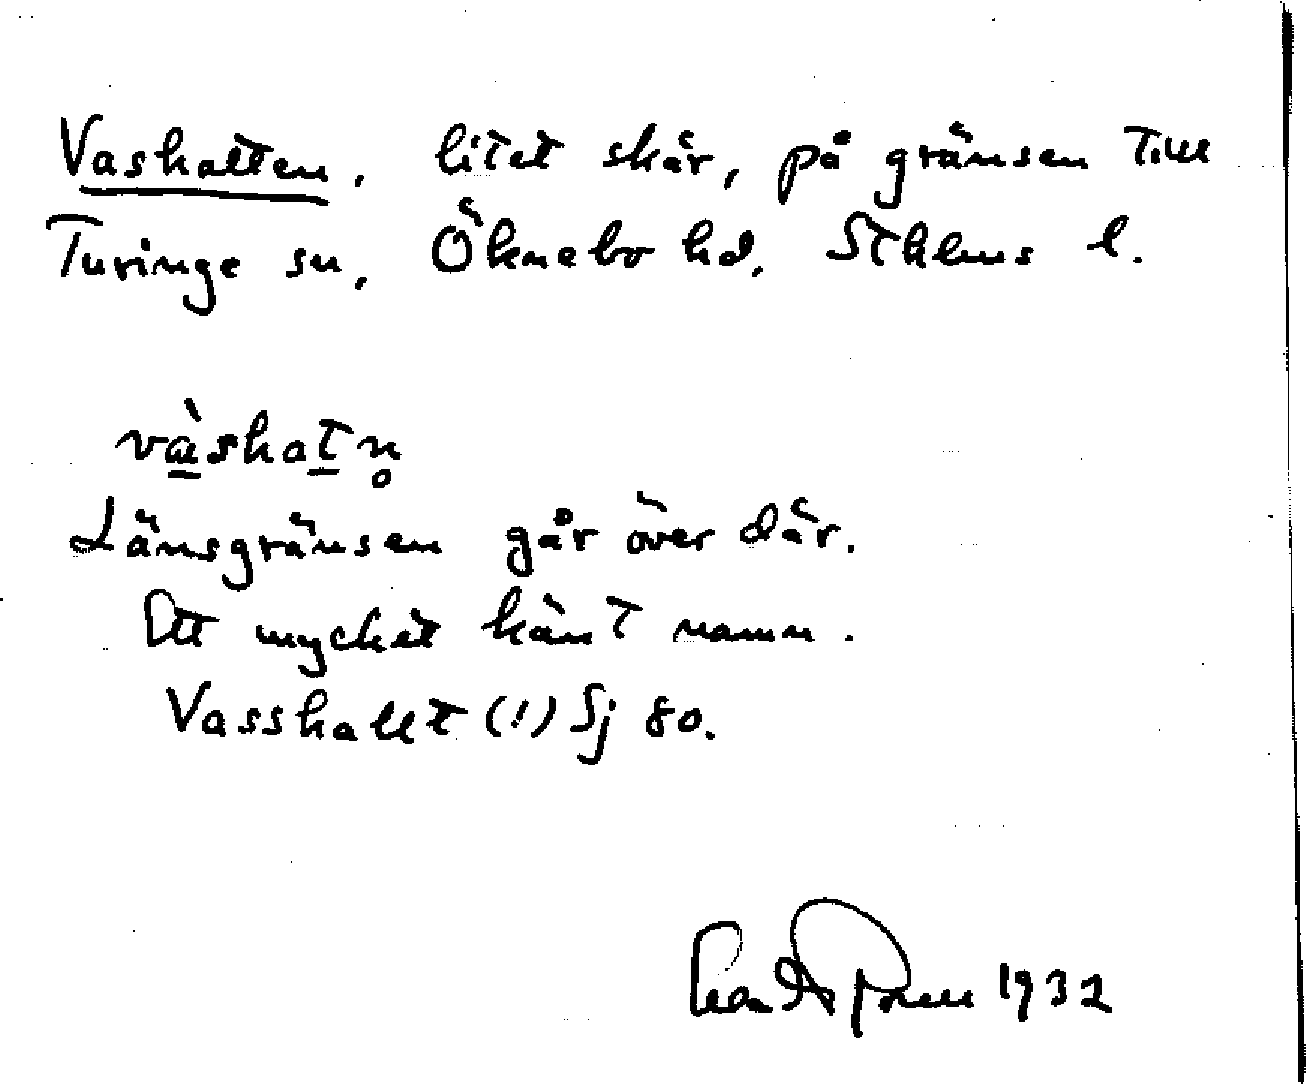 Vashatten, litet skär, på gränsen till
Turinge sn, Öknebo hd, Sthlms l.
vàshatn̥
Länsgränsen går över där.
Ett mycket känt namn.
Vasshallt (!) Sj 80.
1932